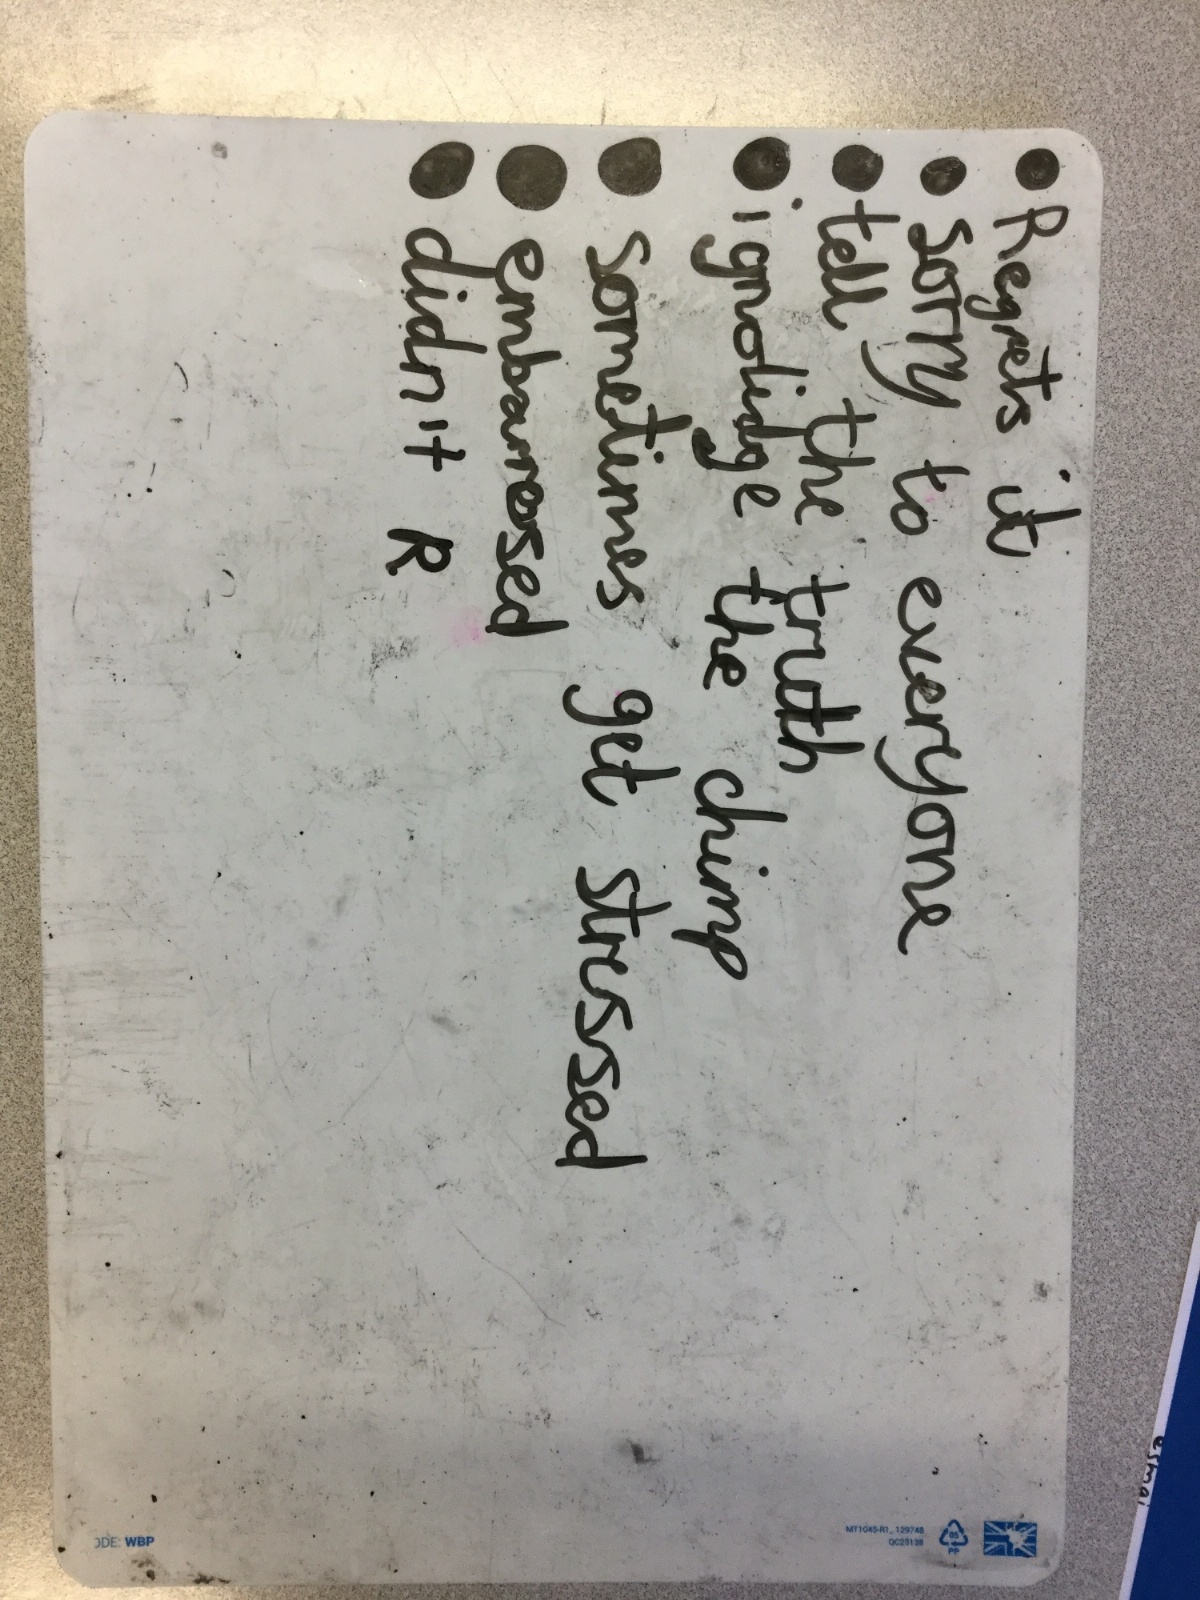 • Regrets it
• sorry to everyone
• tell the truth
• ignolidge the chimp
• sometimes get stressed
• embarresed
• didn't R
MT1045-R1_129748
QC23138
05
PP
ODE: WBP
esmai